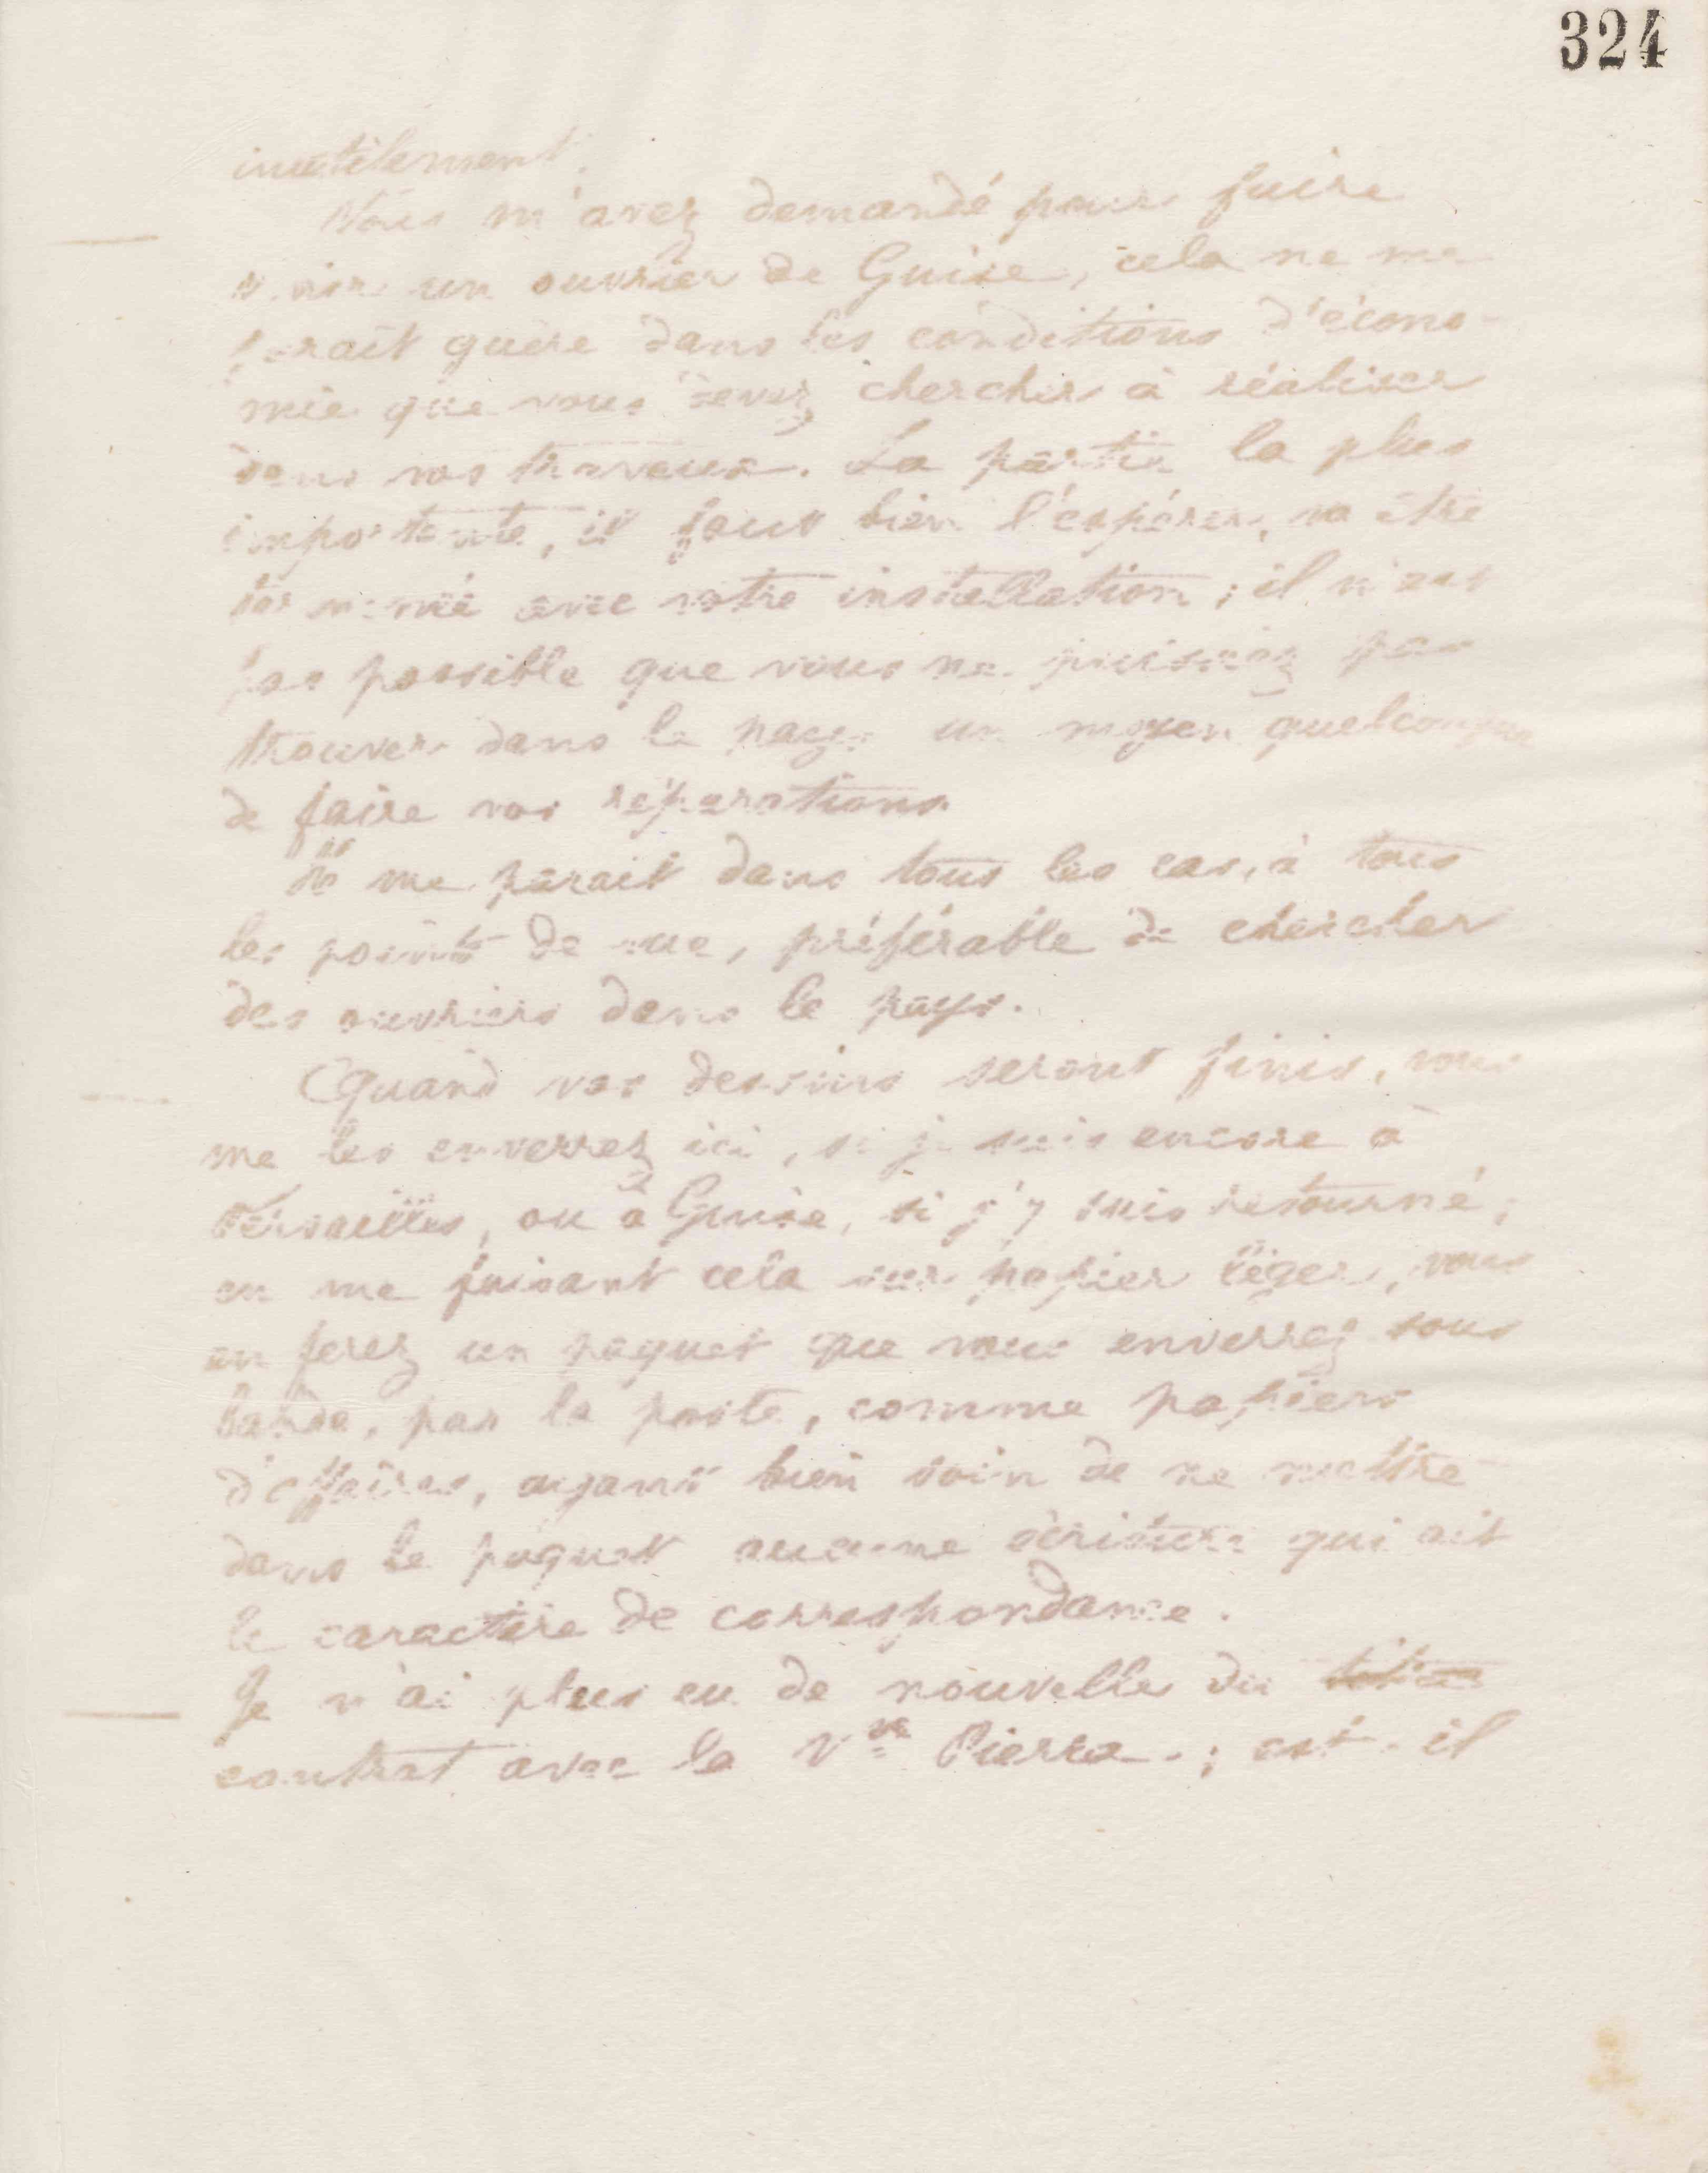 324
inutilement.
Vous m'avez demandé pour faire
venir un ouvrier de Guise, cela ne me
parait guère dans les conditions d'écono-
mie que vous devez chercher à réaliser
dans vos travaux. La partie la plus
importante, il faut bien l'espérer, va être
terminée avec votre installation ; il n'est
pas possible que vous ne puissiez pas
trouver dans le pays un moyen quelconque
de faire vos réparations.
Il me parait dans tous les cas, à tous
les points de vue, préférable de chercher
des ouvriers dans le pays.
Quand vos dessins seront finis, vous
me les enverrez ici, si je suis encore à
Versailles, ou à Guise, si j'y suis retourné ;
en me faisant cela sur papier léger, vous
en ferez un paquet que vous enverrez sous
bande, par la poste, comme papiers
d'affaires, ayant bien soin de ne mettre
dans le paquet aucune écriture qui ait
le caractère de correspondance.
Je n'ai plus eu de nouvelle du
contrat avec la Vve Pierra. ; est-il